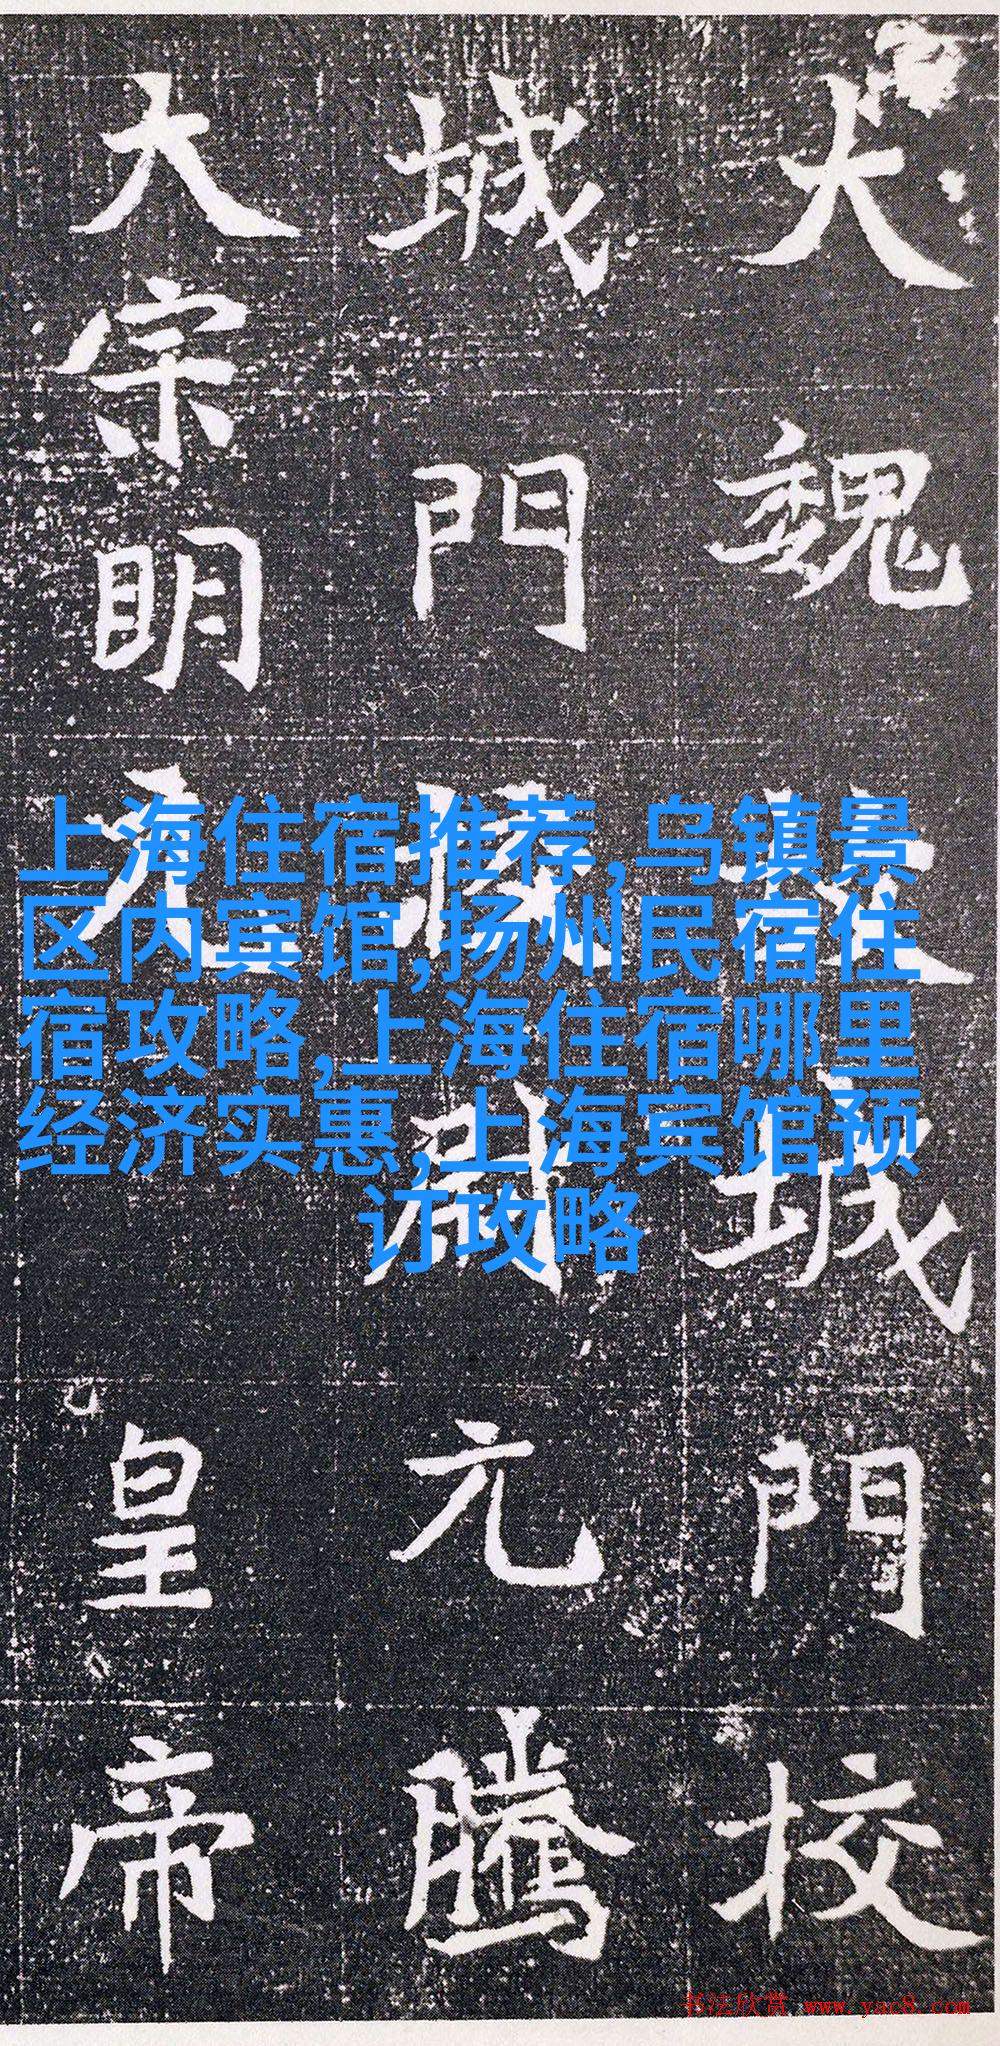 大魏故城門校
城門元騰
大宗明元皇帝
上海住宿推荐,乌镇景
区内宾馆,扬州民宿住
宿攻略,上海住宿哪里
经济实惠,上海宾馆预
订攻略
书法欣赏 www.yac8.com